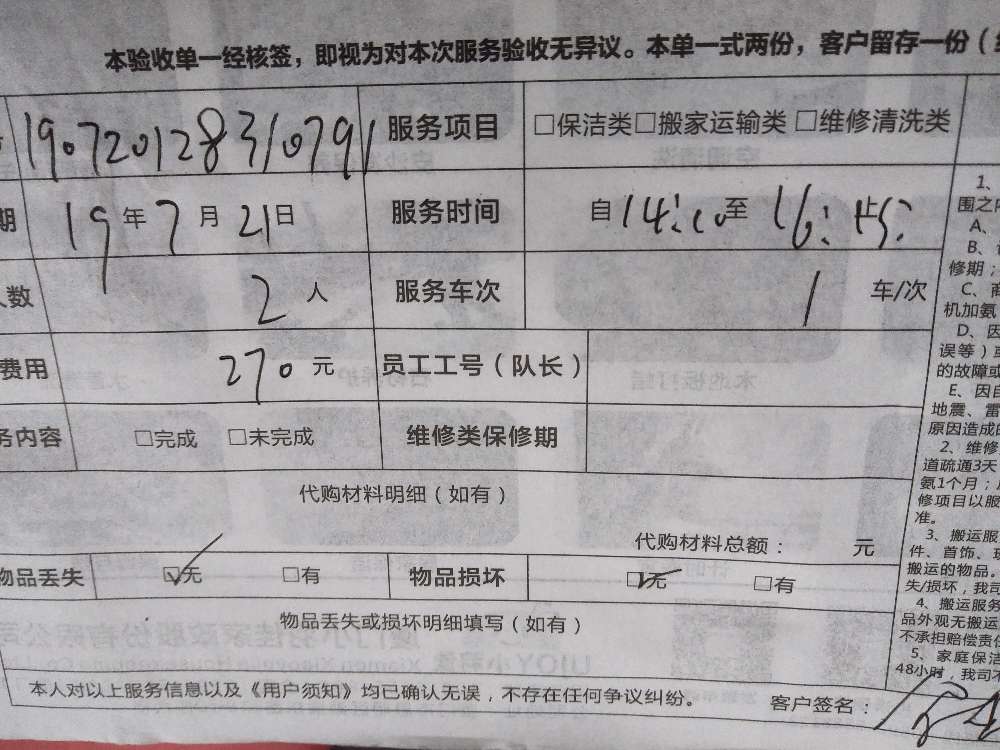 本验收单一经核签，即视为对本次服务验收无异议。本单一式两份，客户留存一份（
190720128310791 服务项目 □保洁类□搬家运输类 □维修清洗类
期 19年7月21日 服务时间 自14:10至16:45
人数 2人 服务车次 1 车/次
费用 270元 员工工号（队长）
务内容 □完成 □未完成 维修类保修期
代购材料明细（如有）
代购材料总额： 元
物品丢失 ☑无 □有 物品损坏 ☑无 □有
物品丢失或损坏明细填写（如有）
本人对以上服务信息以及《用户须知》均已确认无误，不存在任何争议纠纷。
客户签名：
1、
围之内
A、
B、
修期；
C、商
机加氨
D、因
误等）或
的故障或
E、因自
地震、雷
原因造成的
2、维修
道疏通3天
氨1个月；
修项目以服
准。
3、搬运服
件、首饰、
搬运的物品。
失/损坏，我司
4、搬运服务
品外观无搬运
不承担赔偿责
5、家庭保洁
48小时，我司不